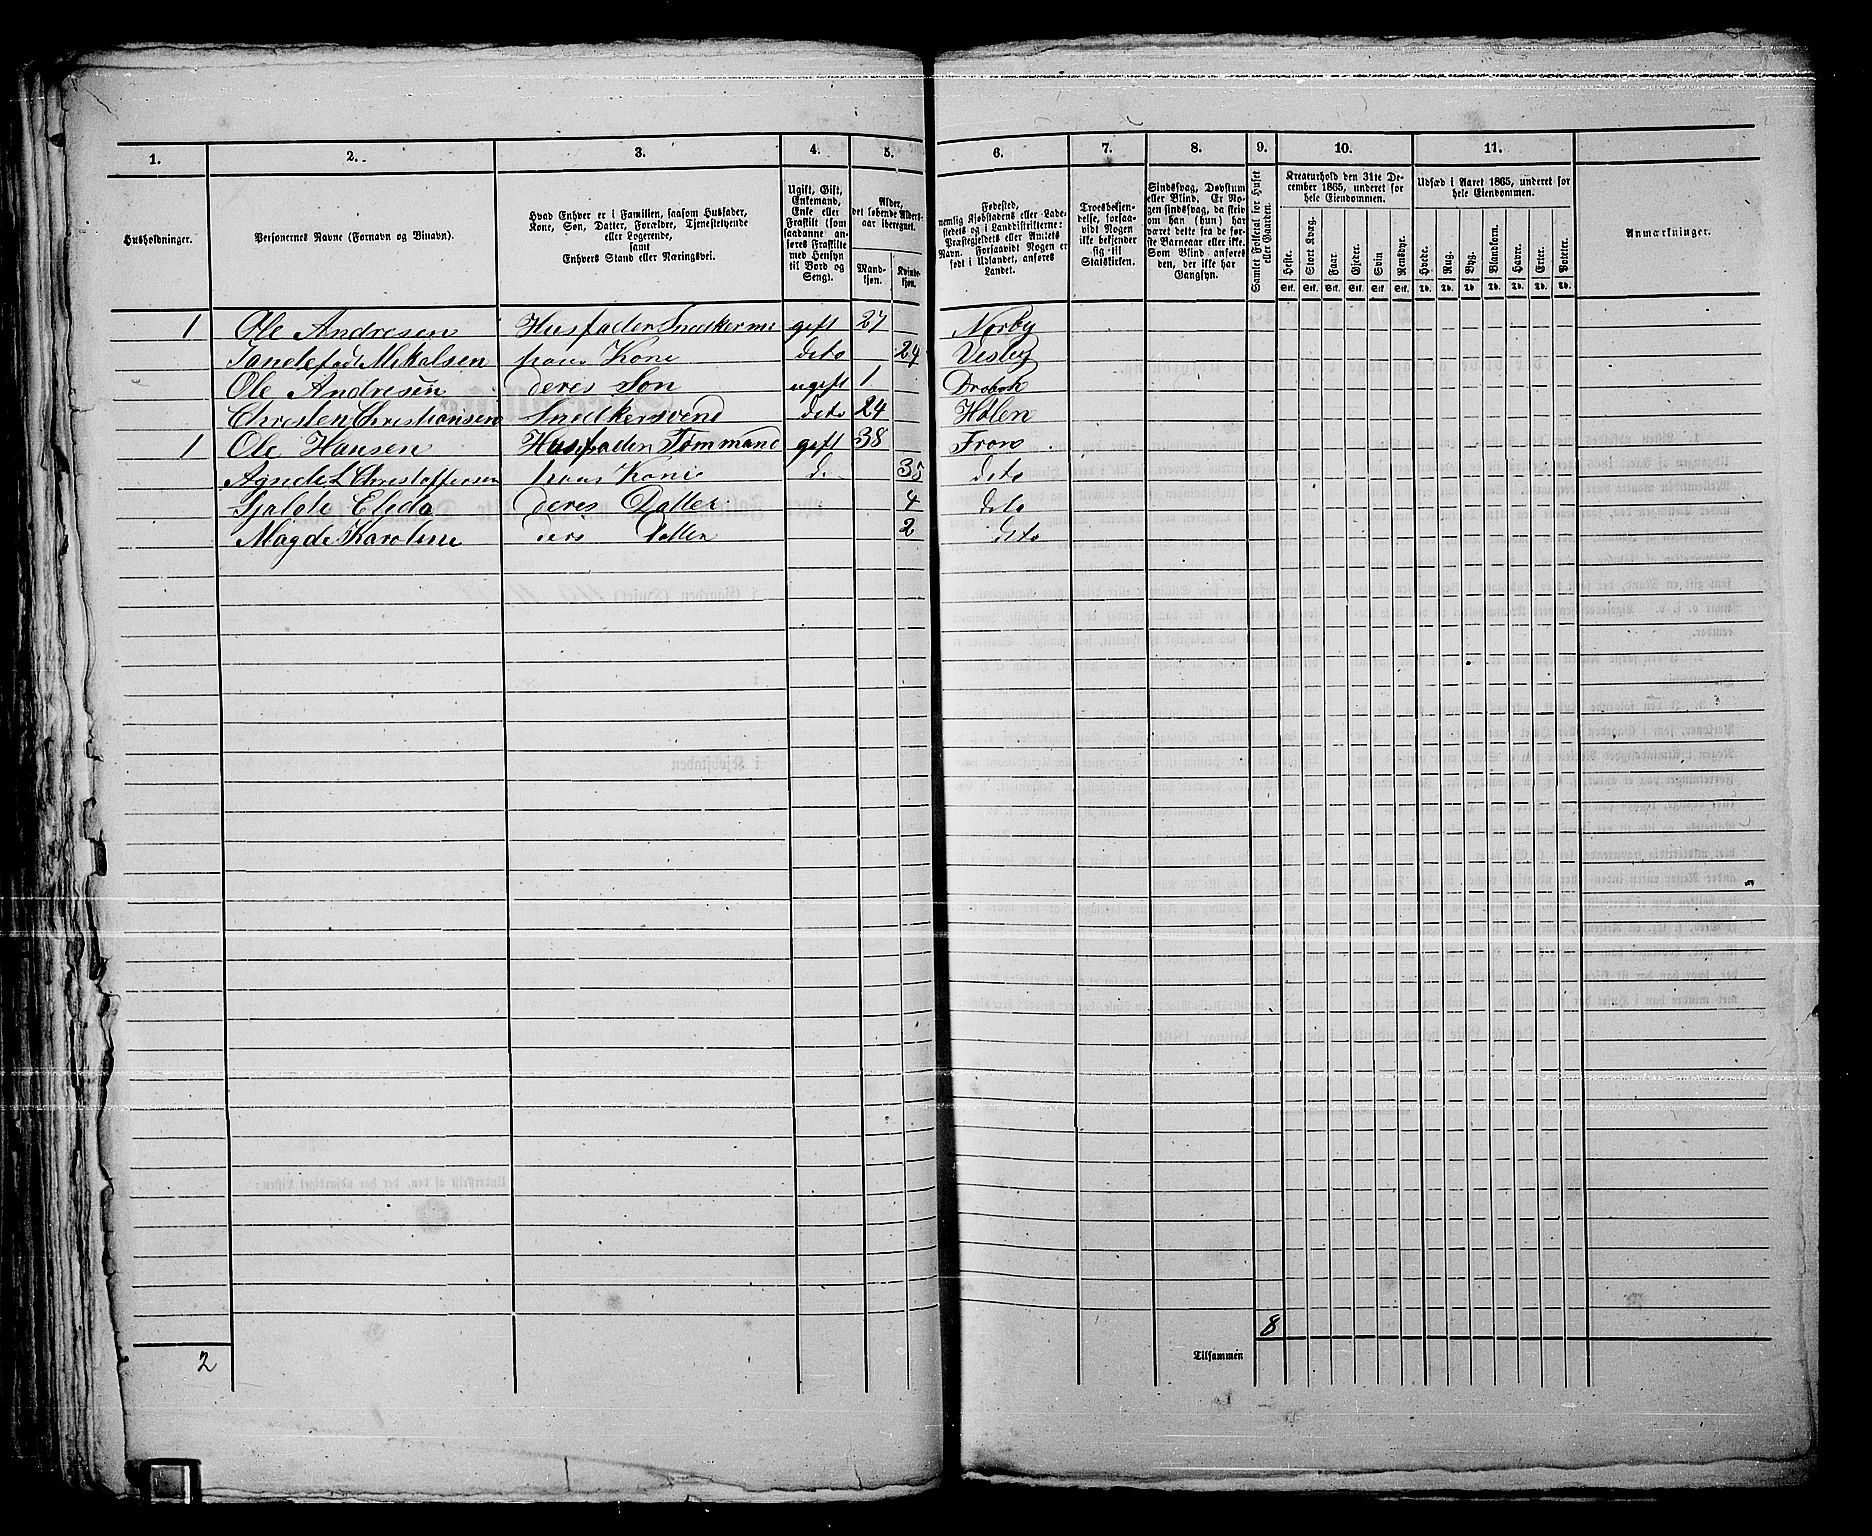 1. 2. 3. 4. 5. 6. 7. 8. 9. 10. 11.
Husholdninger.
Personernes Navne (Fornavn og Binavn).
Hvad Enhver er i Familien, saasom Husfader,
Kone, Søn, Datter, Forældre, Tjenestetyende
eller Logerende,
samt
Enhvers Stand eller Næringsvei.
Ugift, Gift,
Enkemand,
Enke eller
Fraskilt (som
saadanne an-
føres Fraskilte
med Hensyn
til Bord og
Seng).
Alder,
det løbende Alders-
aar iberegnet.
Mand-
kjøn.
Kvinde-
kjøn.
Fødested,
nemlig Kjøbstadens eller Lade-
stedets og i Landdistrikterne:
Præstegjeldets eller Amtets
Navn. Forsaavidt Nogen er
født i Udlandet, anføres
Landet.
Troesbekjen-
delse, forsaa-
vidt Nogen
ikke bekjender
sig til
Statskirken.
Sindssvag, Døvstum
eller Blind. Er No-
gen sindssvag, da skriv
om han (hun) har
været dette fra de før-
ste Barneaar eller ikke.
Som Blind anføres
den, der ikke har
Gangsyn.
Samlet Folketal for Huset
eller Gaarden.
Kreaturhold den 31te De-
cember 1865, underet for
hele Eiendommen.
Heste. Stort Kvæg. Faar. Gjeder. Svin Rensdyr.
Stk. Stk. Stk. Stk. Stk. Stk.
Udsæd i Aaret 1865, underet for
hele Eiendommen.
Hvede. Rug. Byg. Blandkorn. Havre. Erter. Poteter.
Td. Td. Td. Td. Td. Td. Td.
Anmærkninger.
1 Ole Andresen Husfader Snedkerme gift 27 Norby
Mikalsen hans Kone deto 24 Vesby
Ole Andresen deres Søn ugift 1 Drøbak
Christen Christiansen Snedkersvend deto 24 Hølen
1 Ole Hansen Husfader Tømmand gift 38 Fron
Christoffersen hans Kone de 35 deto
Elida deres Datter 4 deto
Magda Karoline deres Datter 2 deto
8
Tilsammen
2